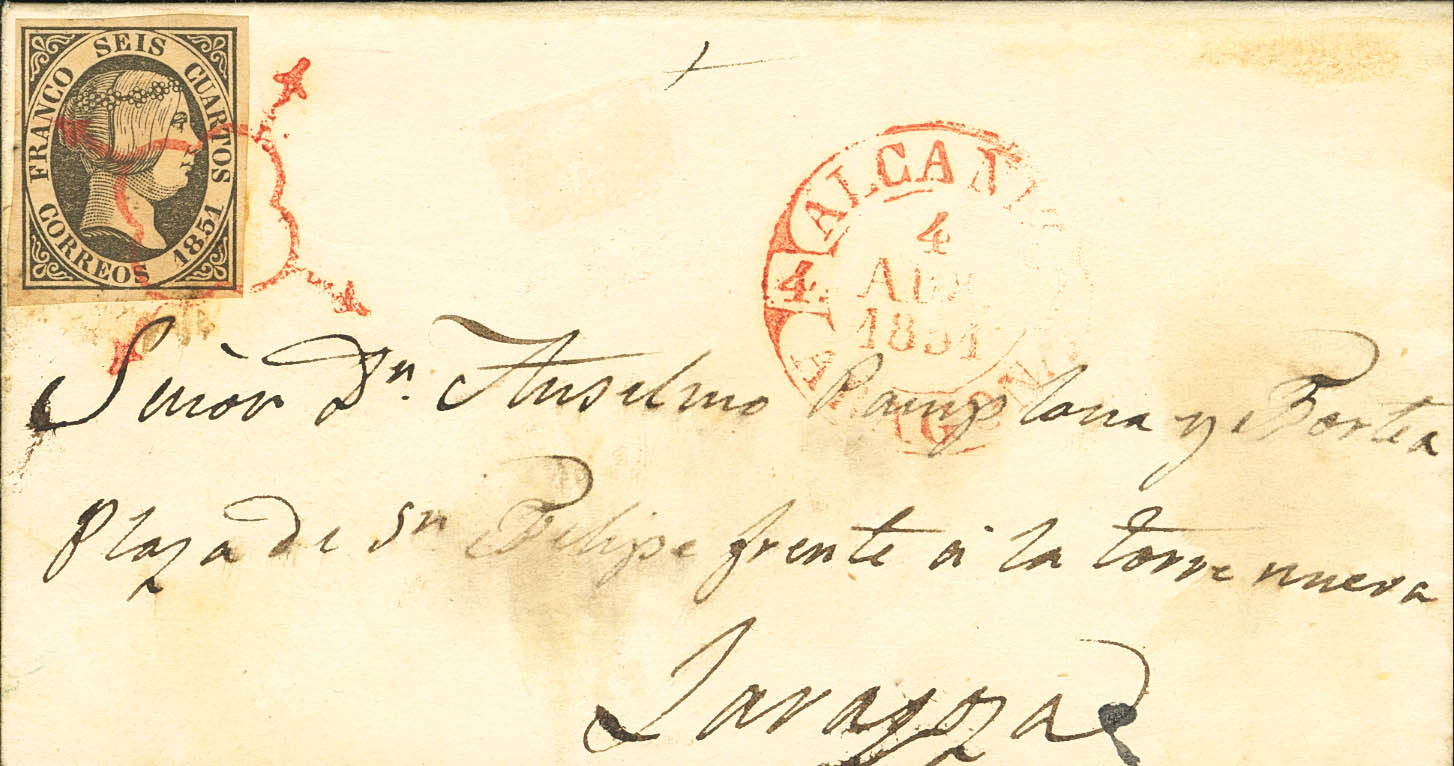 FRANCO SEIS CUARTOS
CORREOS 1851
ALCAÑI
4
4
ABR
1851
ARAGON
Señor Dn. Anselmo Pamplona y Fortea
Plaza de Sn. Felipe frente á la torre nueva
Zaragoza